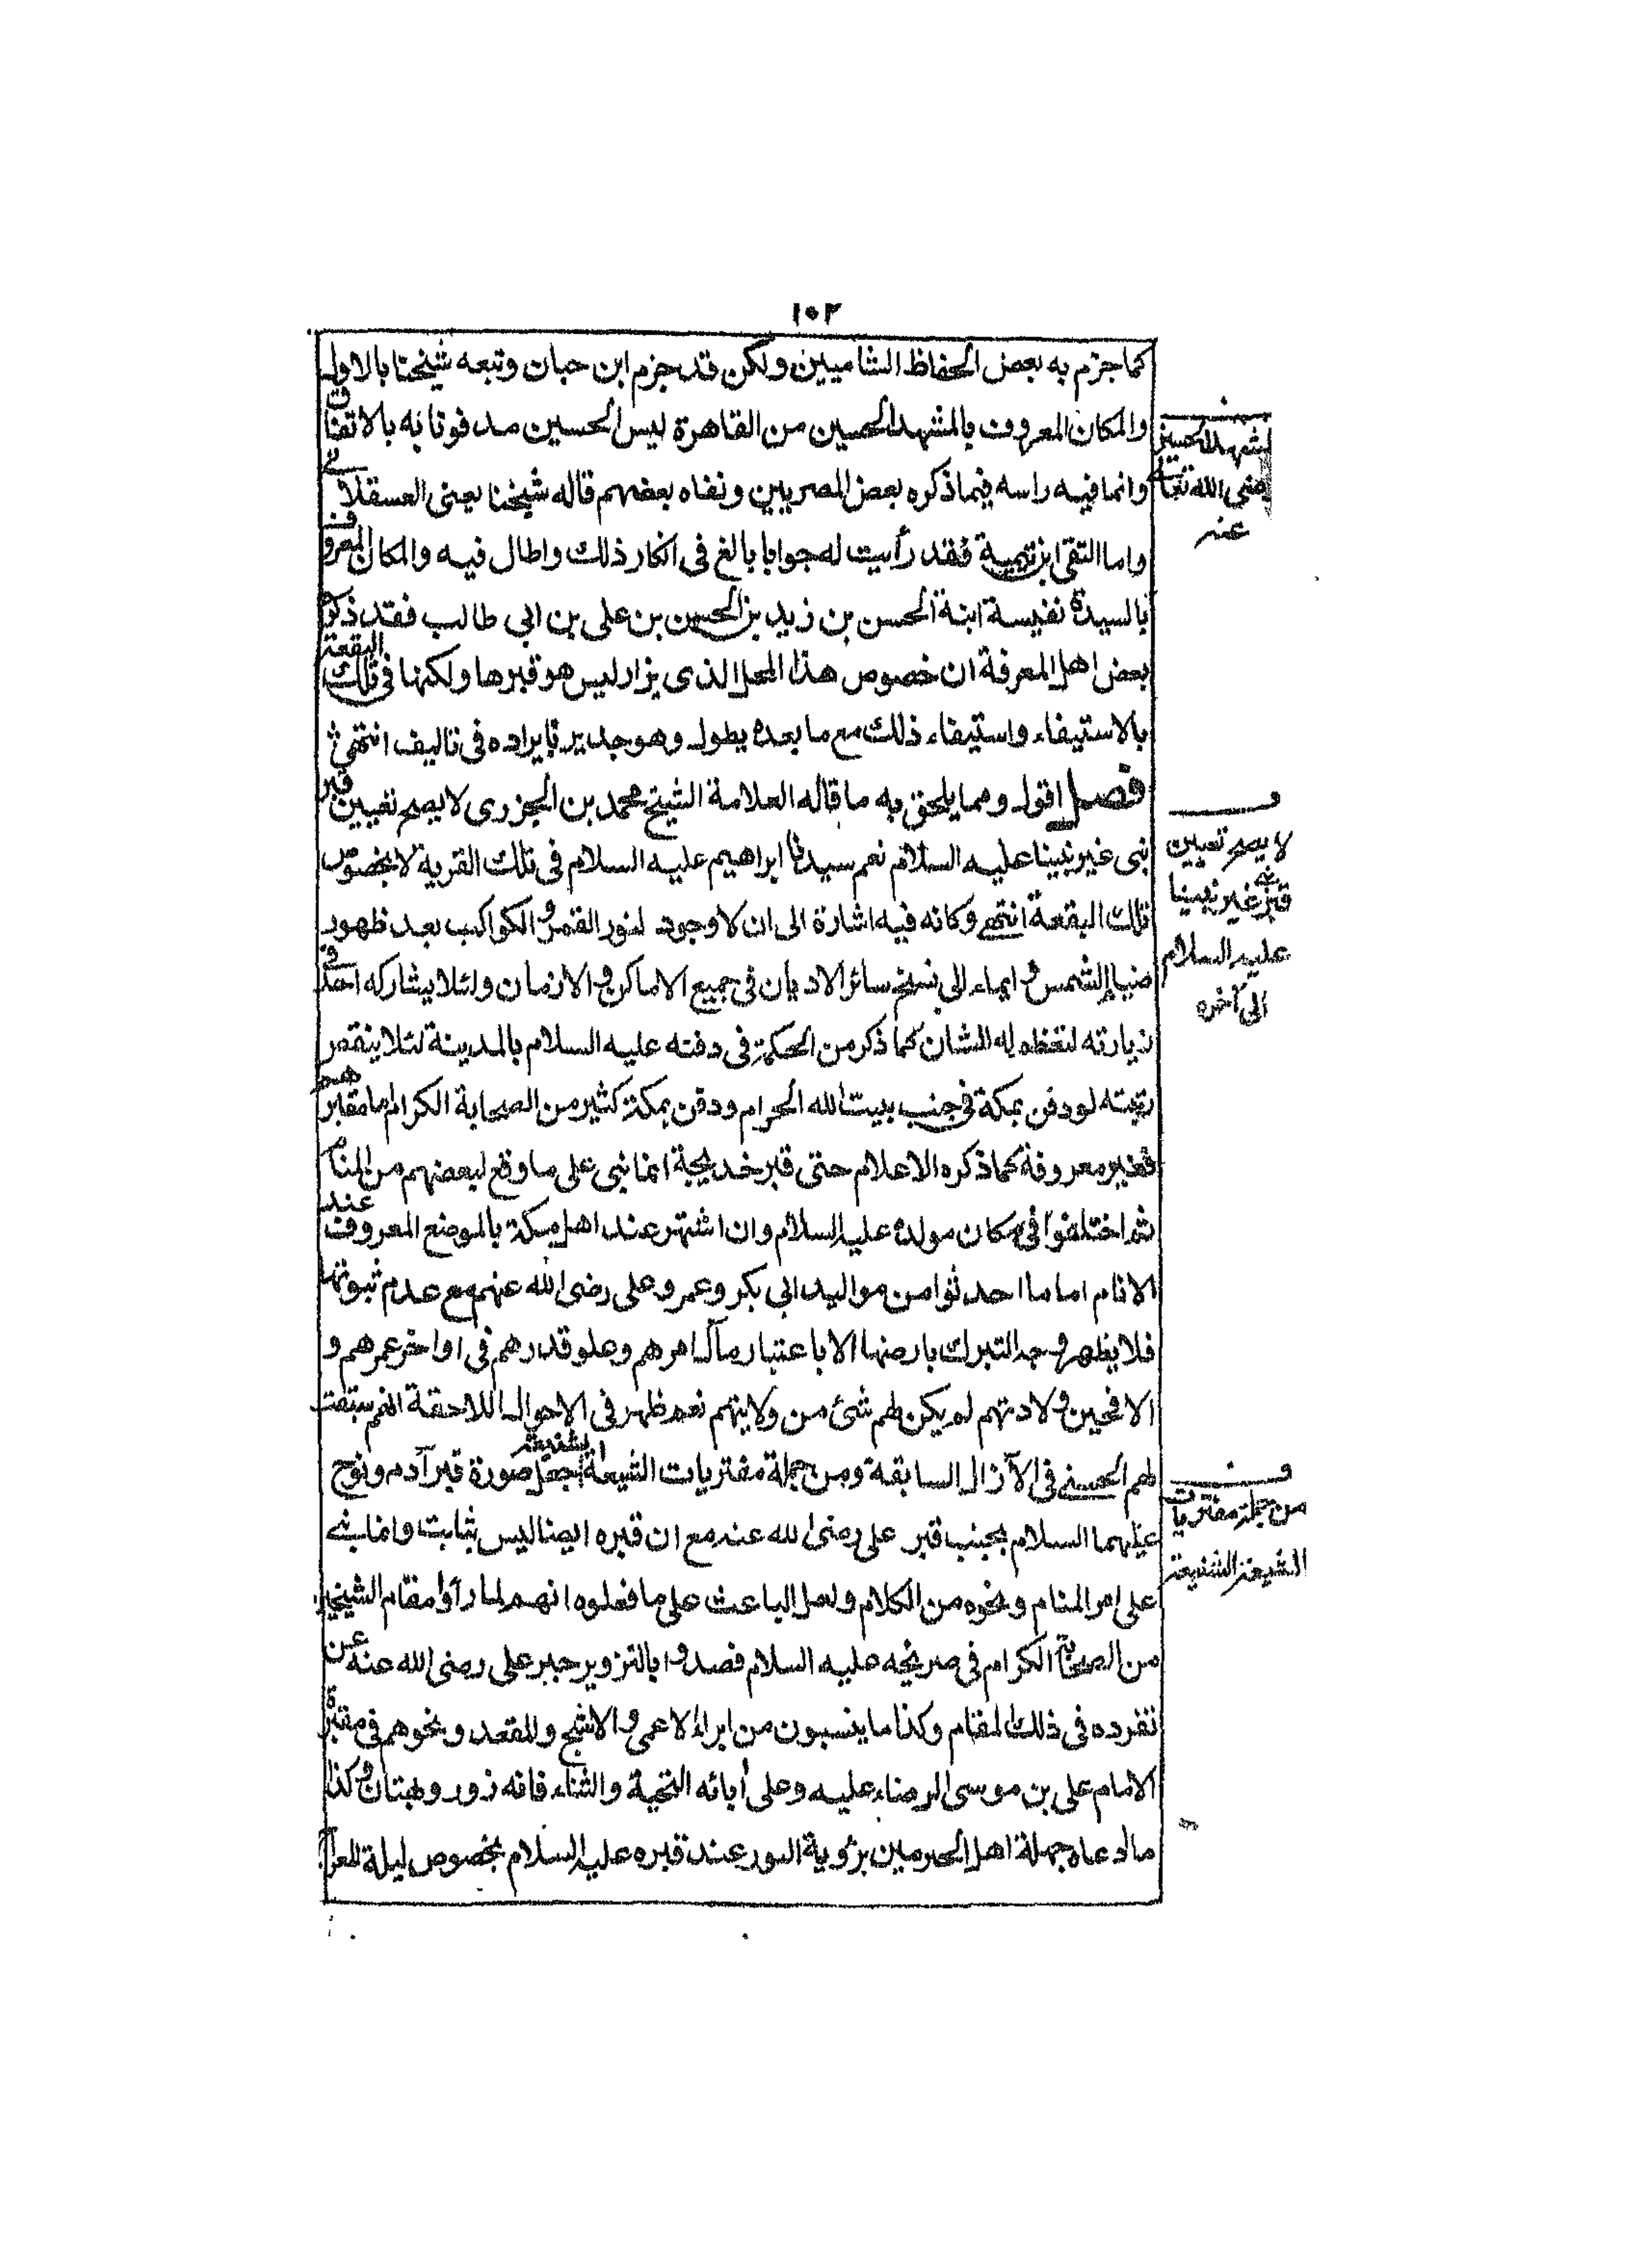 ١٠٢
كما جزم به بعض الحفاظ الشاميين ولكن قد جزم ابن حبان وتبعه شيخنا بالاول
والمكان المعروف بالمشهد الحسين من القاهرة ليس الحسين مدفونا به بالاتفاق
وانما فيه راسه فيما ذكره بعض المصريين ونفاه بعضهم قاله شيخنا يعنى العسقلانى
واما التقى ابن تيمية فقد رأيت له جوابا بالغ فى انكار ذلك واطال فيه والمكان المعروف
بالسيدة نفيسة ابنة الحسن بن زيد بن الحسين بن على بن ابى طالب فقد ذكر
بعض اهل المعرفة ان خصوص هذا المحل الذى يزار ليس هو قبرها ولكنها فى تلك البقعة
بالاستيفاء واستيفاء ذلك مع ما بعده يطول وهو جدير بايراده فى تاليف انتهى
فصل اقول ومما يلحق به ما قاله العلامة الشيخ محمد بن الجزرى لا يصح تعيين قبر
نبى غير نبينا عليه السلام نعم سيدنا ابراهيم عليه السلام فى تلك القرية لا بخصوص
تلك البقعة انتهى وكانه فيه اشارة الى ان لا وجود لنور القمر والكواكب بعد ظهور
ضياء الشمس وايماء الى نسخ سائر الاديان فى جميع الاماكن والازمان ولئلا يشاركه احد فى
زيارته لتعظم له الشان كما ذكر من الحكمة فى دفنه عليه السلام بالمدينة لئلا ينقص
رتبته لو دفن بمكة فى جنب بيت الله الحرام ودفن بمكة كثير من الصحابة الكرام اما مقابرهم
فغير معروفة كما ذكره الاعلام حتى قبر خديجة انما نبى على ما وقع لبعضهم من المنام
ثم اختلفوا فى مكان مولده عليه السلام وان اشتهر عند اهل مكة بالموضع المعروف عند
الانام اما ما احدثوا من مواليد ابى بكر وعمر وعلى رضى الله عنهم مع عدم ثبوتها
فلا يظهر وجه التبرك بارضها الا باعتبار مآل امرهم وعلو قدرهم فى اواخر عمرهم و
الا فحين ولادتهم لم يكن لهم شئ من ولايتهم نعم ظهر فى الاحوال اللاحقة انهم سبقت
لهم الحسنى فى الآزال السابقة ومن جملة مفتريات الشيعة الشنيعة جعل صورة قبر آدم ونوح
عليهما السلام بجنب قبر على رضى الله عنه مع ان قبره ايضا ليس بثابت وانما بنى
على امر المنام ونحوه من الكلام ولعل الباعث على ما فعلوه انهم لما رأوا مقام الشيخين
من الصحابة الكرام فى ضريحه عليه السلام قصدوا بالتزوير جبر على رضى الله عنه عن
تفرده فى ذلك المقام وكذا ما ينسبون من ابراء الاعمى والاشج والمقعد ونحوهم فى مقبرة
الامام على بن موسى الرضاء عليه وعلى أبائه التحية والثناء فانه زور وبهتان وكذا
ما ادعاه جهلة اهل الحرمين برؤية النور عند قبره عليه السلام بخصوص ليلة المعراج
المشهد الحسين
رضى الله تعالى
عنه
ف
لا يصح تعيين
قبر نبى غير نبينا
عليه السلام
الى آخره
ف
من جملة مفتريات
الشيعة الشنيعة